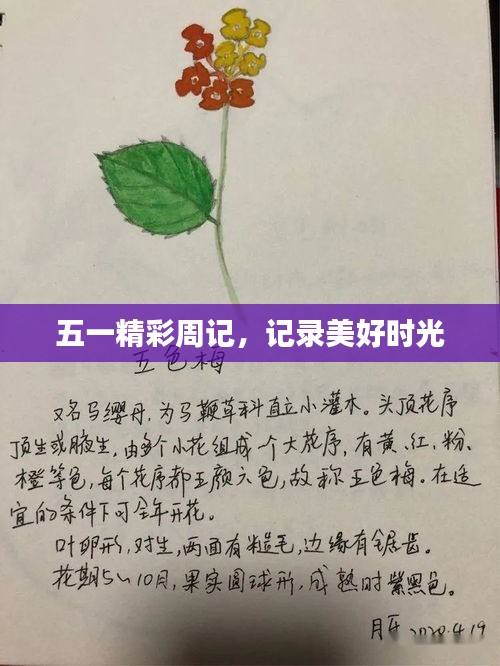 五一精彩周记，记录美好时光
五色梅
又名马缨丹，为马鞭草科直立小灌木。头顶花序
顶生或腋生，由多个小花组成一个大花序，有黄、红、粉、
橙等色，每个花序都五颜六色，故称五色梅。在适
宜的条件下可全年开花。
叶卵形，对生，两面有糙毛，边缘有锯齿。
花期5~10月，果实圆球形，成熟时紫黑色。
月牙 2020.4.19